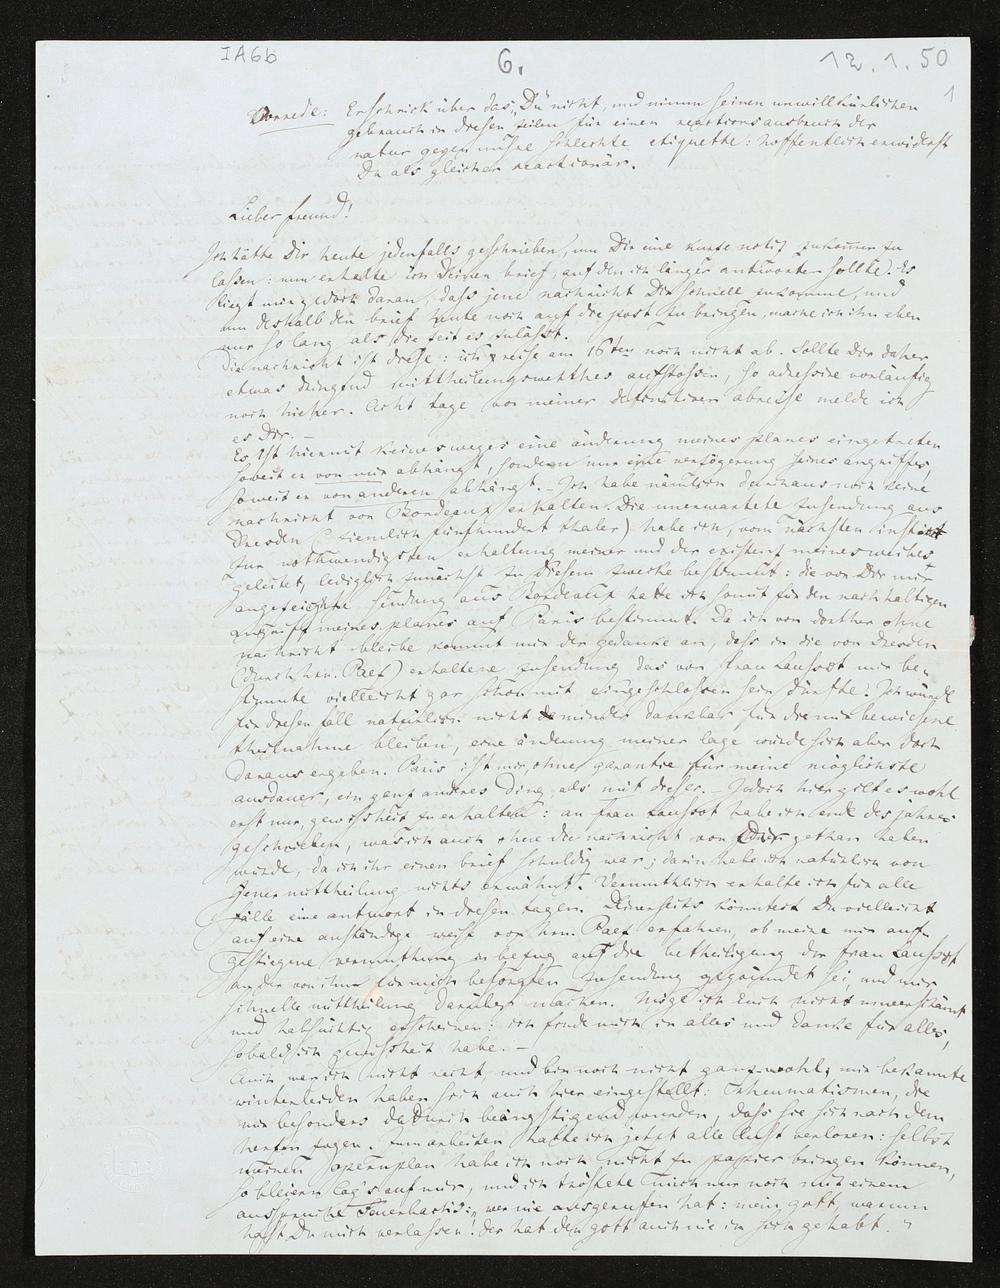 IA6b
6.
12.1.50
1
Vorrede: Erschrick über das „Du" nicht, und nimm seinen unwillkürlichen
gebrauch in diesen zeilen für einen reactionsausbruch der
natur gegen unsre schlechte etiquette: hoffentlich erwiderst
Du als gleicher reactionär.
Lieber freund!
Ich hätte Dir heute jedenfalls geschrieben, um Dir eine kurze notiz zukommen zu
lassen: nun erhalte ich Deinen brief, auf den ich länger antworten sollte. Es
liegt mir jedoch daran, dass jene nachricht Dir schnell zukomme, und
um deshalb den brief heute noch auf die post zu bringen, mache ich ihn eben
nur so lang als die zeit es zulässt.
Die nachricht ist diese: ich reise am 16ten noch nicht ab. Sollte Dir daher
etwas dringend mittheilungswerthes aufstossen, so adressire vorläufig
noch hieher. Acht tage vor meiner definitiven abreise melde ich
es Dir. –
Es ist hiermit keineswegs eine änderung meines planes eingetreten
soweit er von mir abhängt, sondern nur eine verzögerung seines angriffes,
soweit er von anderen abhängt. – Ich habe nämlich durchaus noch keine
nachricht von Bordeaux erhalten. Die unerwartete zusendung aus
Dresden (ziemlich fünfhundert thaler) habe ich, vom nächsten instinkt
zur nothwendigsten erhaltung meiner und der existenz meines weibes
geleitet, lediglich zunächst zu diesem zwecke bestimmt: die von Dir mir
angezeigte sendung aus Bordeaux hatte ich somit für den nachhaltigen
angriff meines planes auf Paris bestimmt. Da ich von dorther ohne
nachricht bleibe kommt mir der gedanke an, dass in die von Dresden
(durch hrn. Paez) erhaltene zusendung das von frau Laussot mir be-
stimmte vielleicht gar schon mit eingeschlossen sein dürfte! Ich würde
für diesen fall natürlich nicht minder dankbar für die mir bewiesene
theilnahme bleiben, eine änderung meiner lage würde sich aber doch
daraus ergeben. Paris ist mir, ohne garantie für meine möglichste
ausdauer, ein ganz anderes ding, als mit dieser. – Jedoch hier gilt es wohl
erst nur, gewissheit zu erhalten: an frau Laussot habe ich ende des jahres
geschrieben, was ich auch ohne die nachricht von Dir gethan haben
würde, da ich ihr einen brief schuldig war; darin habe ich natürlich von
jener mittheilung nichts erwähnt. Vermuthlich erhalte ich für alle
fälle eine antwort in diesen tagen. Deinerseits könntest Du vielleicht
auf eine anständige weise von hrn. Paez erfahren, ob meine mir auf-
gestiegene vermuthung in bezug auf die betheiligung der frau Laussot
an der von ihm für mich besorgten zusendung gegründet sei, und mir
schnelle mittheilung darüber machen. Möge ich Euch nicht unverschämt
und habsüchtig erscheinen: ich finde mich in alles und danke für alles,
sobald ich gewissheit habe. –
Auch war ich nicht recht, und bin noch nicht ganz wohl; mir bekannte
winterleiden haben sich auch hier eingestellt: rheumatismen, die
mir besonders dadurch beängstigend wurden, dass sie sich nach dem
herzen zogen. Zum arbeiten hatte ich jetzt alle lust verloren: selbst
meinen opernplan habe ich noch nicht zu papier bringen können,
so bleiern lag's auf mir, und ich tröstete mich nur noch mit einem
ausspruche Feuerbach's: „wer nie ausgerufen hat: mein gott, warum
hast Du mich verlassen! der hat den gott auch nie in sich gehabt."